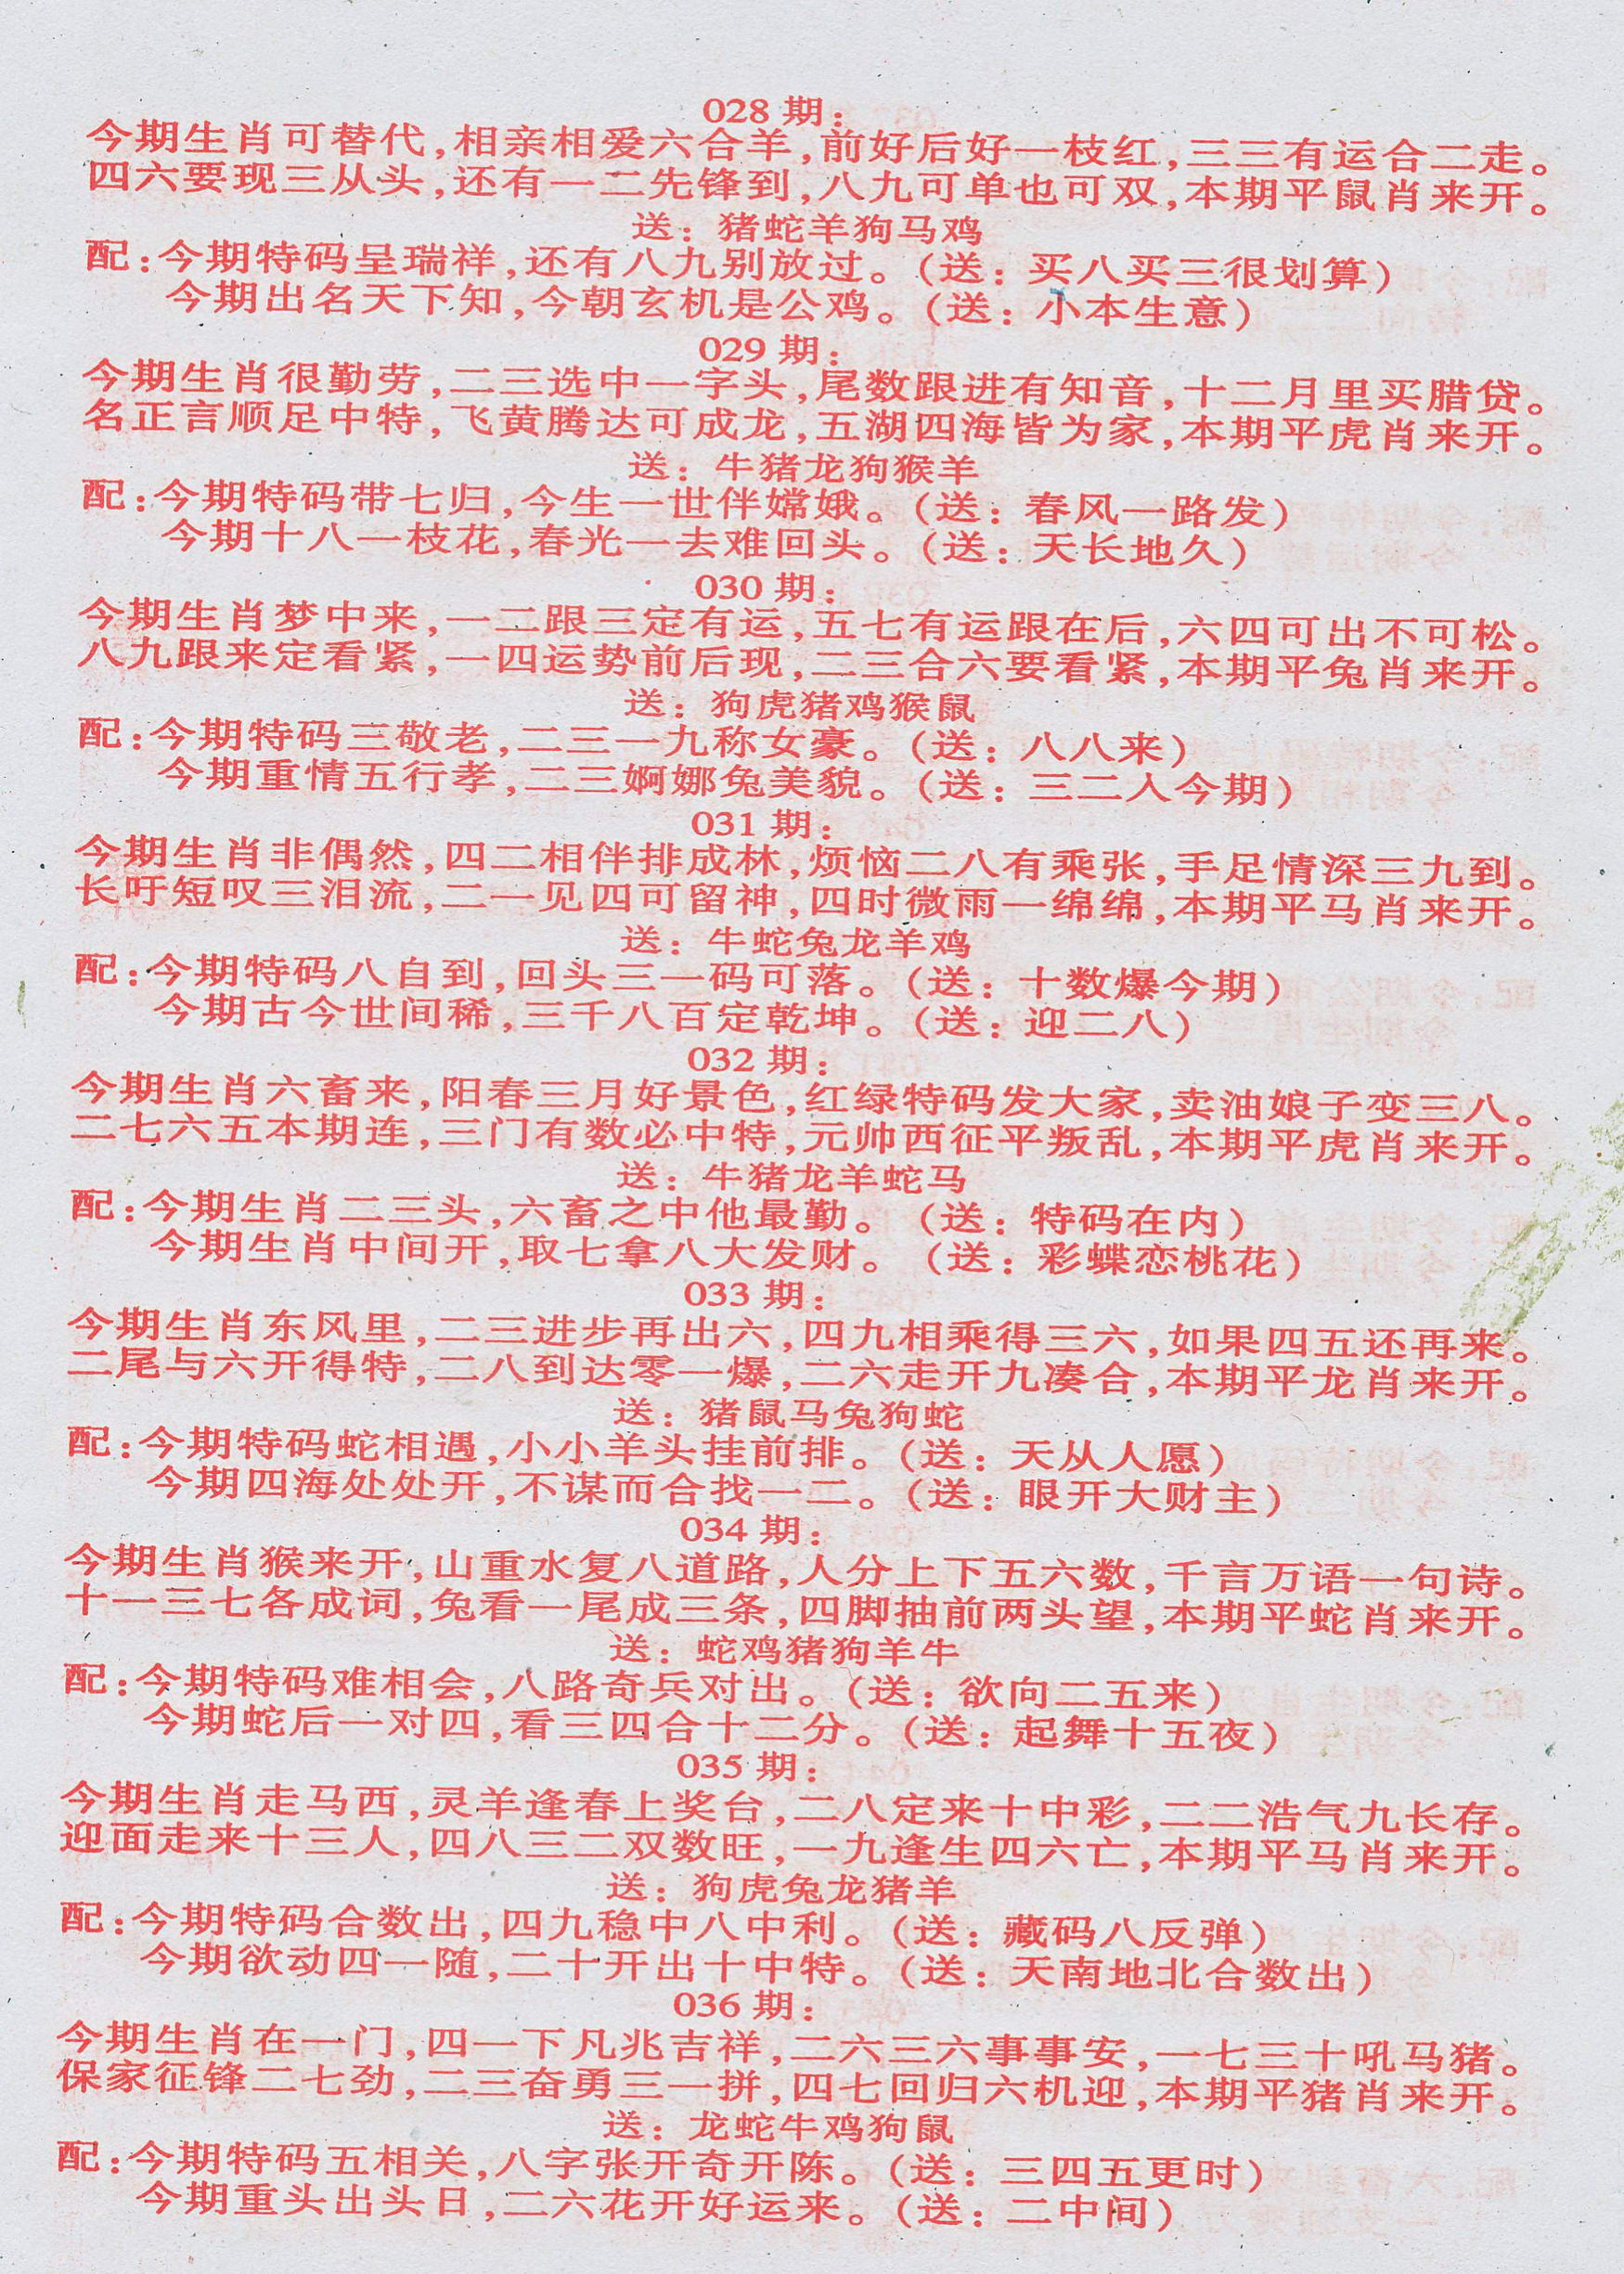 028 期：
今期生肖可替代，相亲相爱六合羊，前好后好一枝红，三三有运合二走。
四六要现三从头，还有一二先锋到，八九可单也可双，本期平鼠肖来开。
送：猪蛇羊狗马鸡
配：今期特码呈瑞祥，还有八九别放过。（送：买八买三很划算）
今期出名天下知，今朝玄机是公鸡。（送：小本生意）
029 期：
今期生肖很勤劳，二三选中一字头，尾数跟进有知音，十二月里买腊贷。
名正言顺足中特，飞黄腾达可成龙，五湖四海皆为家，本期平虎肖来开。
送：牛猪龙狗猴羊
配：今期特码带七归，今生一世伴嫦娥。（送：春风一路发）
今期十八一枝花，春光一去难回头。（送：天长地久）
030 期：
今期生肖梦中来，一二跟三定有运，五七有运跟在后，六四可出不可松。
八九跟来定看紧，一四运势前后现，二三合六要看紧，本期平兔肖来开。
送：狗虎猪鸡猴鼠
配：今期特码三敬老，二三一九称女豪。（送：八八来）
今期重情五行孝，二三婀娜兔美貌。（送：三二人今期）
031 期：
今期生肖非偶然，四二相伴排成林，烦恼二八有乘张，手足情深三九到。
长吁短叹三泪流，二一见四可留神，四时微雨一绵绵，本期平马肖来开。
送：牛蛇兔龙羊鸡
配：今期特码八自到，回头三一码可落。（送：十数爆今期）
今期古今世间稀，三千八百定乾坤。（送：迎二八）
032 期：
今期生肖六畜来，阳春三月好景色，红绿特码发大家，卖油娘子变三八。
二七六五本期连，三门有数必中特，元帅西征平叛乱，本期平虎肖来开。
送：牛猪龙羊蛇马
配：今期生肖二三头，六畜之中他最勤。（送：特码在内）
今期生肖中间开，取七拿八大发财。（送：彩蝶恋桃花）
033 期：
今期生肖东风里，二三进步再出六，四九相乘得三六，如果四五还再来。
二尾与六开得特，二八到达零一爆，二六走开九凑合，本期平龙肖来开。
送：猪鼠马兔狗蛇
配：今期特码蛇相遇，小小羊头挂前排。（送：天从人愿）
今期四海处处开，不谋而合找一二。（送：眼开大财主）
034 期：
今期生肖猴来开，山重水复八道路，人分上下五六数，千言万语一句诗。
十一三七各成词，兔看一尾成三条，四脚抽前两头望，本期平蛇肖来开。
送：蛇鸡猪狗羊牛
配：今期特码难相会，八路奇兵对出。（送：欲向二五来）
今期蛇后一对四，看三四合十二分。（送：起舞十五夜）
035 期：
今期生肖走马西，灵羊逢春上奖台，二八定来十中彩，二二浩气九长存。
迎面走来十三人，四八三二双数旺，一九逢生四六亡，本期平马肖来开。
送：狗虎兔龙猪羊
配：今期特码合数出，四九稳中八中利。（送：藏码八反弹）
今期欲动四一随，二十开出十中特。（送：天南地北合数出）
036 期：
今期生肖在一门，四一下凡兆吉祥，二六三六事事安，一七三十吼马猪。
保家征锋二七劲，二三奋勇三一拼，四七回归六机迎，本期平猪肖来开。
送：龙蛇牛鸡狗鼠
配：今期特码五相关，八字张开奇开陈。（送：三四五更时）
今期重头出头日，二六花开好运来。（送：二中间）